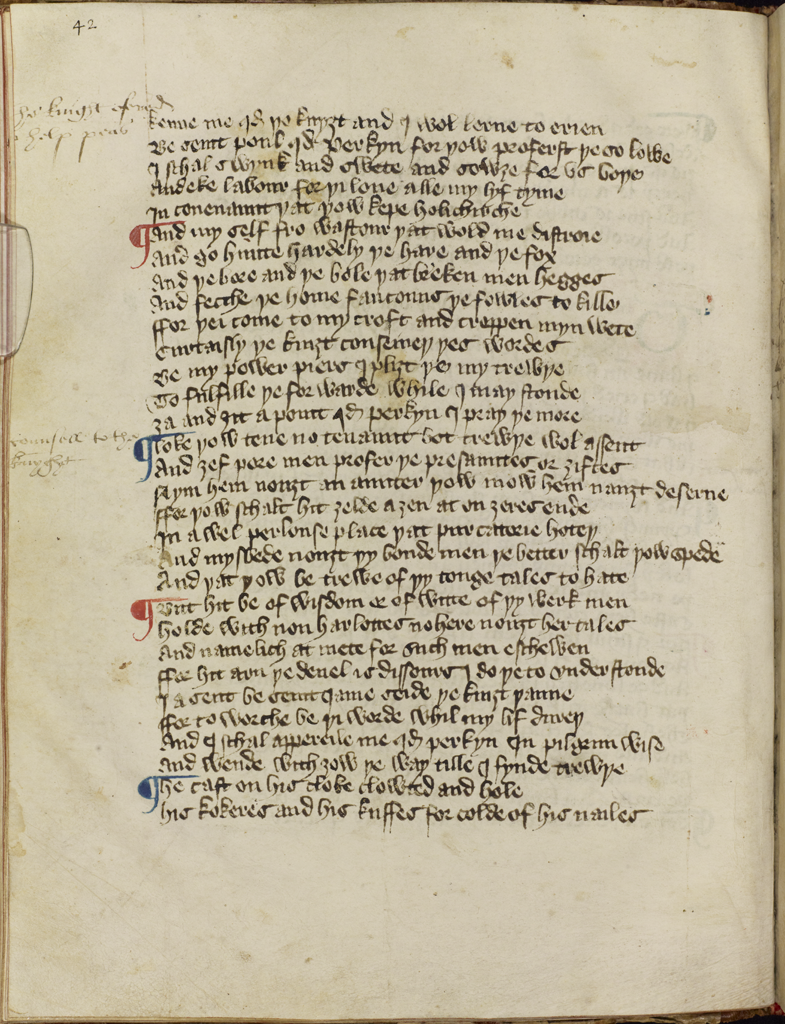 42
kenne me qd ye knyȝt and I wol lerne to erien
the knyght ofred
Be seint poul qd Perkyn for yow proferst ye so lowe
to help pers
I schal swynk and swete and sowȝe for us boye
And eke labour for yi loue alle my lyf tyme
In couenaunt yat yow kepe holichirche
And my self fro wastour yat wold me distroie
And go hunte hardely ye hare and ye fox
And ye bore and ye bole yat breken men hegges
And fecche ye home faucouns ye fowles to kille
ffor yei come to my croft and croppen myn wete
Curtaisly ye knyȝt conseiuey yes wordes
Be my power piers I pliȝt ye my trewye
To fulfille ye forwarde while I may stonde
ȝa and ȝit a point qd perkyn I pray ye more
counsell to the
loke yow tene no tenaunt bot trewye wol assent
knyght
And ȝef pore men profer ye presauntes or ȝiftes
Nym hem nouȝt an aunter yow mow hem nauȝt deserue
ffor yow schalt hit ȝelde aȝen at on ȝeres ende
In a wel perlouse place yat purcatorie hotey
And mysbede nouȝt yy bonde men ye better schalt yow spede
And yat yow be trewe of yy tonge tales to hate
But hit be of wisdom or of witte of yy werk men
holde with non harlottes no here nouȝt her tales
And namelich at mete for such men eschewen
ffor hit arn ye deuel is dissours I do ye to vnderstonde
I a sent be seint Jame seide ye knyȝt yanne
ffor to worche be yi worde whil my lif durey
And I schal appereile me qd perkyn In pilgrim wise
And wende with ȝow ye way tille I fynde trewye
he cast on his cloke clowted and hole
his kokeres and his kuffes for colde of his nailes